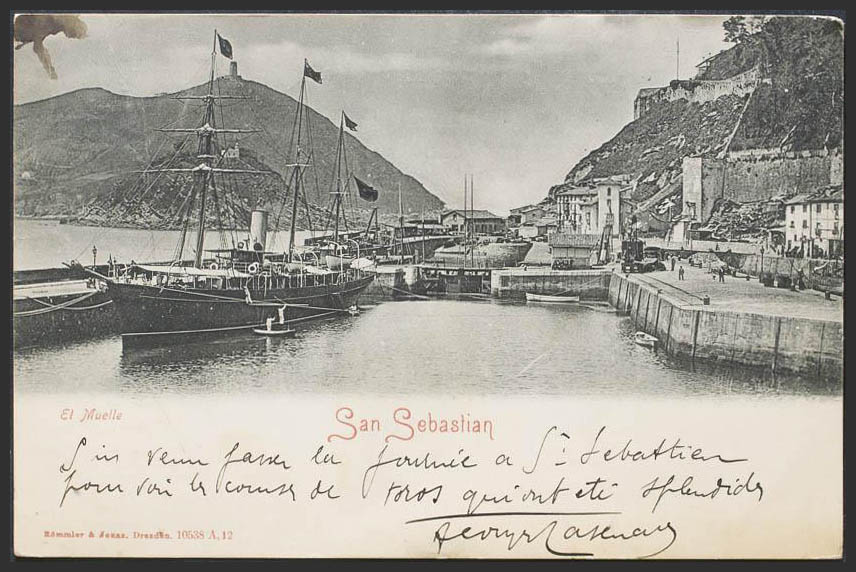 El Muelle
San Sebastian
Suis venu passer la journée a St. Sebastien
pour voir les courses de toros qui ont été splendides
Römmler & Jonas, Dresden. 10538 A, 12